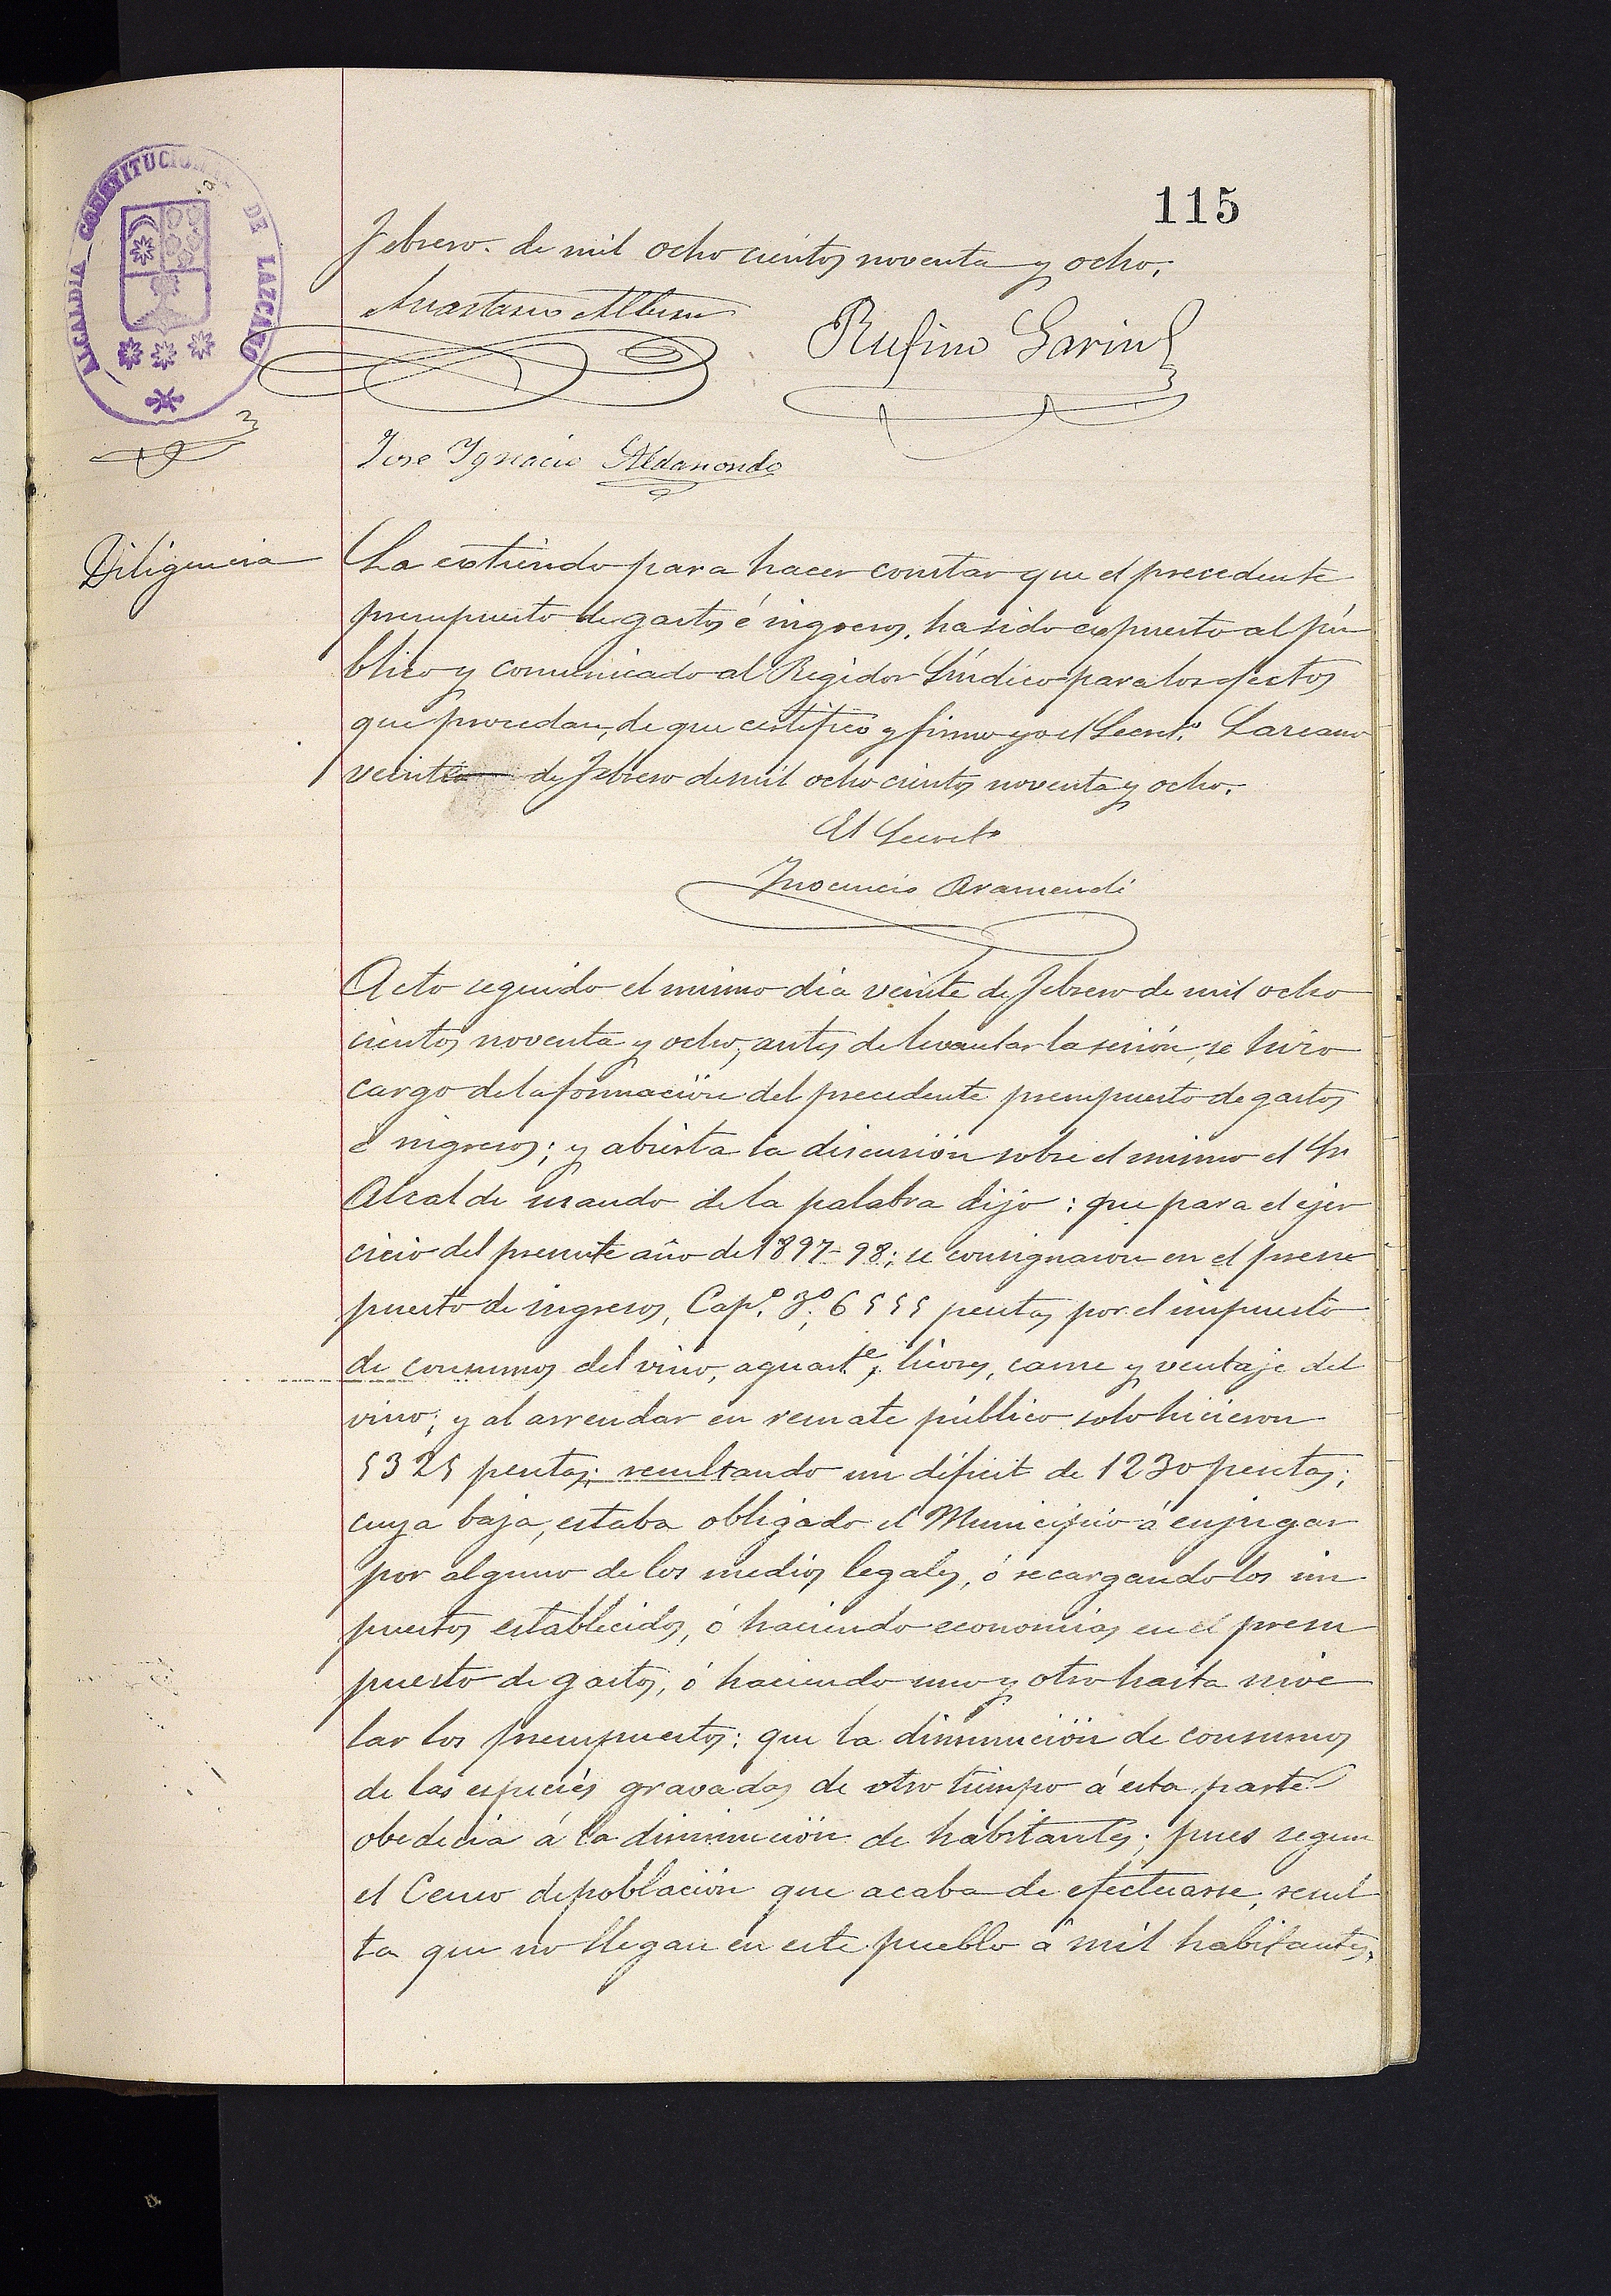 115
ALCALDIA CONSTITUCIONAL DE LAZCANO
Febrero. de mil ocho cientos noventa y ocho.
Rufino Garin
Jose Ignacio Aldanondo
Diligencia
La extiendo para hacer constar que el precedente
presupuesto de gastos é ingresos, ha sido expuesto al pú
blico y comunicado al Regidor Síndico para los efectos
que procedan, de que certifico y firmo yo el Secretº. Lazcano
veinte de Febrero de mil ocho cientos noventa y ocho.
El Secretº
Inocencio Aramendi
Acto seguido el mismo dia veinte de Febrero de mil ocho
cientos noventa y ocho, antes de levantar la sesión, se hizo
cargo de la formación del precedente presupuesto de gastos
é ingresos; y abierta la discusión sobre el mismo el Sr
Alcalde usando de la palabra dijo: que para el ejer
cicio del presente año de 1897-98; se consignaron en el presu
puesto de ingresos, Capº. 3º. 6555 pesetas por el impuesto
de consumos del vino, aguarte, licores, carne y ventaje del
vino; y al arrendar en remate público solo hicieron
5325 pesetas; resultando un déficit de 1230 pesetas;
cuya baja, estaba obligado el Municipio á enjugar
por alguno de los medios legales, ó recargando los im
puestos establecidos, ó haciendo economias en el presu
puesto de gastos, ó haciendo uno y otro hasta nive
lar los presupuestos: que la disminución de consumos
de las especies gravadas de otro tiempo á esta parte
obedecia á la disminución de habitantes; pues segun
el Censo de población que acaba de efectuarse, resul
ta que no llegan en este pueblo á mil habitantes,